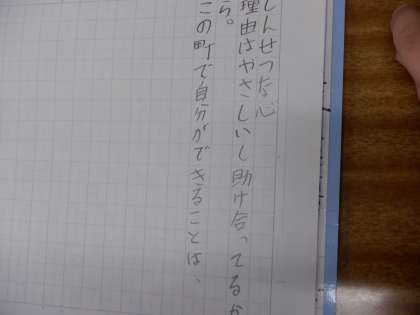 しんせつな心
理由はやさしいし助け合ってるか
ら。
この町で自分ができることは、